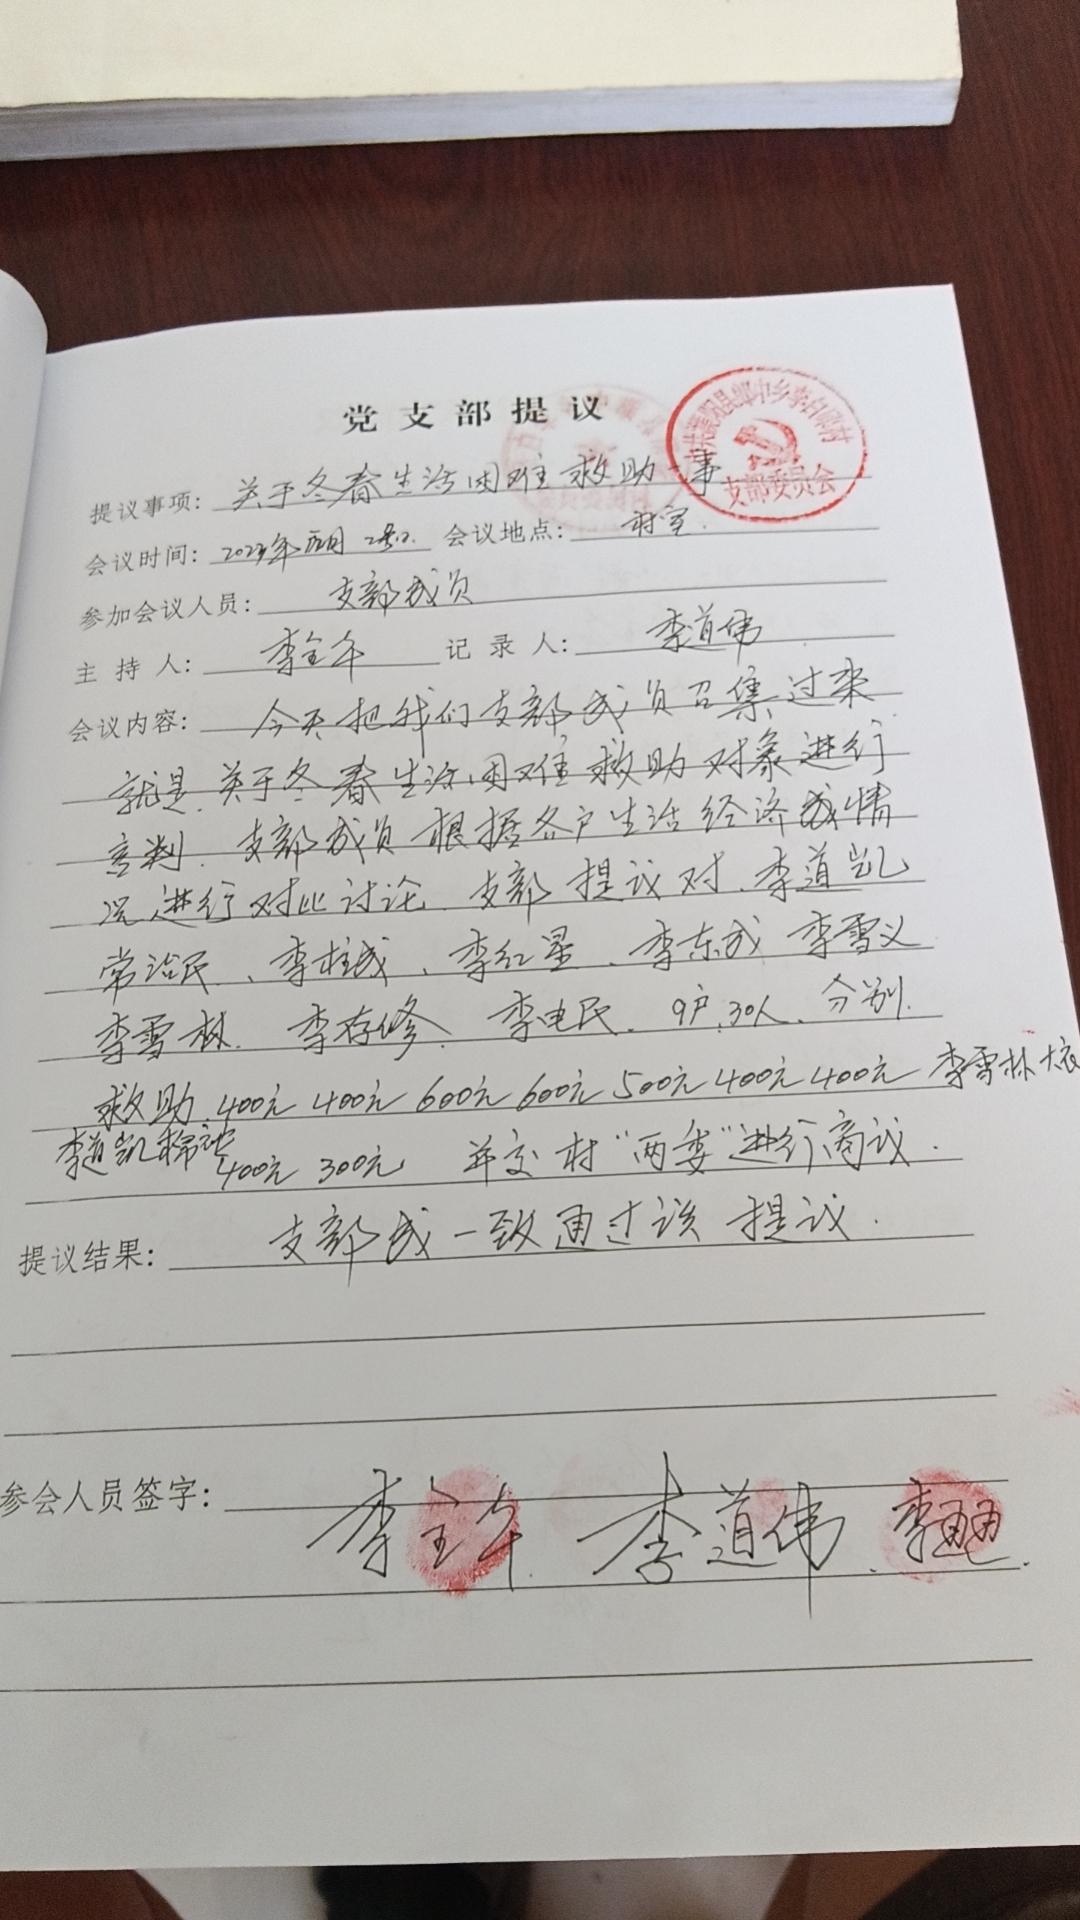 党支部提议
支部委员会
提议事项: 关于冬春生活困难救助一事
会议时间: 2023年 月 会议地点: 村室.
参加会议人员: 支部成员
主持人: 李全午 记录人: 李道伟
会议内容: 今天把我们支部成员召集过来
就是.关于冬春生活困难救助对象进行
判. 支部成员根据各户生活经济 情
况进行对比讨论. 支部提议对. 李道凯
常治民、李柱成、李红星、李东成 李雪义
李雪林. 李存修. 李电民. 9户.30人. 分别.
救助.400元 400元 600元 600元 500元 400元 400元 李雪林大衣
李道凯棉被
400元 300元 并交村“两委”进行商议.
提议结果: 支部成一致通过该提议.
参会人员签字: 李全午. 李道伟.